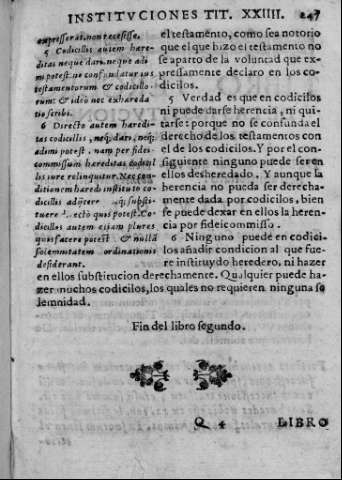 INSTITVCIONES TIT. XXIIII. 247
expresserat, non recesisse.
5 Codicillis autem here-
ditas neque dari, neque adi
mi potest, ne confundatur ius
testamentorum & codicillo-
rum: & ideò nec exhereda
tio scribi.
6 Directo autem heredi-
tas codicillis, neq; dari, neq;
adimi potest. nam per fidei-
commissum hereditas codicil
lis iure relinquitur. Nec con-
ditionem hæredi instituto co-
dicillis adijcere substi-
tuere directo quis potest. Co-
dicillos autem etiam plures
quis facere potest & nullā
solemnitatem ordinationis
desiderant.
el testamento, como sea notorio
que el que hizo el testamento no
se aparto de la voluntad que ex-
pressamente declaro en los co-
dicilos.
5 Verdad es que en codicilos
ni puede darse herencia, ni qui-
tarse: porque no se confunda el
derecho de los testamentos con
el de los codicilos. Y por el con-
siguiente ninguno puede ser en
ellos desheredado. Y aunque la
herencia no pueda ser derecha-
mente dada por codicilos, bien
se puede dexar en ellos la heren-
cia por fideicommisso.
6 Ninguno puede en codici-
los añadir condicion al que fue-
re instituydo heredero, ni hazer
en ellos substitucion derechamente. Qualquier puede ha-
zer muchos codicilos, los quales no requieren ninguna so
lemnidad.
Fin del libro segundo.
Q 4 LIBRO